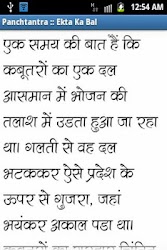 12:54 AM
Panchtantra :: Ekta Ka Bal
एक समय की बात हैं कि
कबूतरों का एक दल
आसमान में भोजन की
तलाश में उडता हुआ जा रहा
था। गलती से वह दल
भटककर ऐसे प्रदेश के
ऊपर से गुजरा, जहां
भयंकर अकाल पडा था।